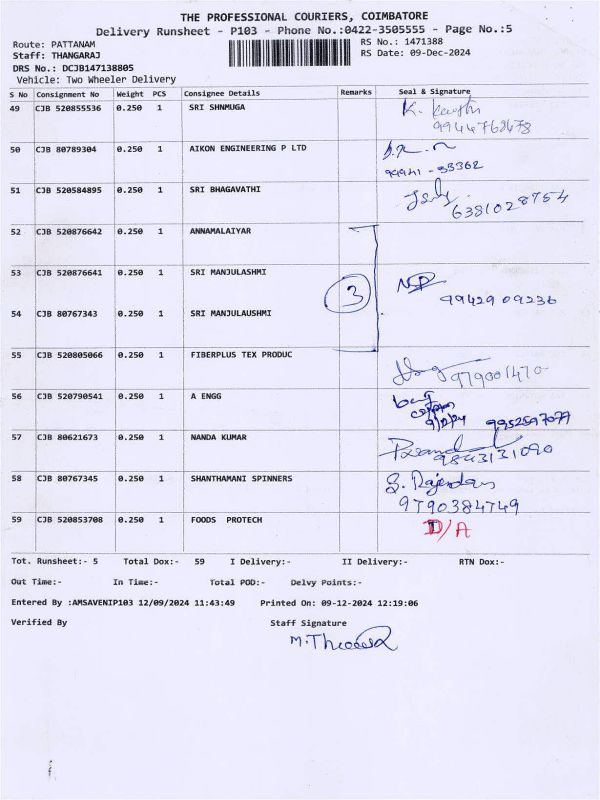 THE PROFESSIONAL COURIERS, COIMBATORE
Delivery Runsheet - P103 - Phone No.:0422-3505555 - Page No.:5
Route: PATTANAM RS No.: 1471388
Staff: THANGARAJ RS Date: 09-Dec-2024
DRS No.: DCJB147138805
Vehicle: Two Wheeler Delivery
S No Consignment No Weight PCS Consignee Details Remarks Seal & Signature
49 CJB 520855536 0.250 1 SRI SHNMUGA
9944768678
50 CJB 80789304 0.250 1 AIKON ENGINEERING P LTD
99941-33362
51 CJB 520584895 0.250 1 SRI BHAGAVATHI
6381028754
52 CJB 520876642 0.250 1 ANNAMALAIYAR
53 CJB 520876641 0.250 1 SRI MANJULASHMI
3 9942909236
54 CJB 80767343 0.250 1 SRI MANJULAUSHMI
55 CJB 520805066 0.250 1 FIBERPLUS TEX PRODUC
979001470
56 CJB 520790541 0.250 1 A ENGG
9/12/24 9952597079
57 CJB 80621673 0.250 1 NANDA KUMAR
9843131090
58 CJB 80767345 0.250 1 SHANTHAMANI SPINNERS S. Rajendran
9790384749
59 CJB 520853708 0.250 1 FOODS PROTECH D/A
Tot. Runsheet:- 5 Total Dox:- 59 I Delivery:- II Delivery:- RTN Dox:-
Out Time:- In Time:- Total POD:- Delvy Points:-
Entered By :AMSAVENIP103 12/09/2024 11:43:49 Printed On: 09-12-2024 12:19:06
Verified By Staff Signature